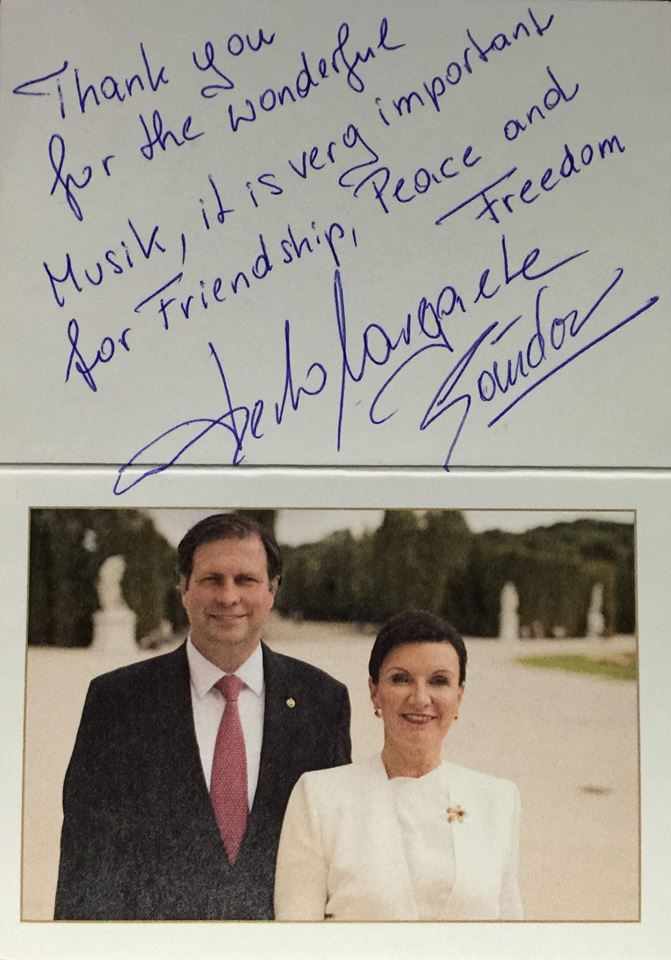 Thank you
for the wonderful
Musik, it is very important
for Friendship, Peace and
Freedom
Margarete
Sándor